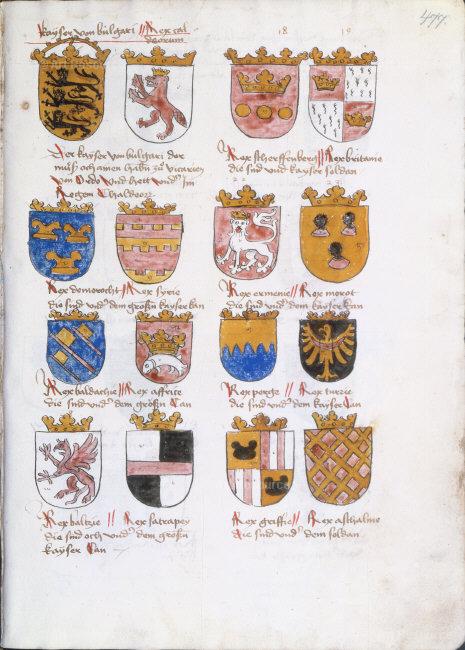 Kayser von bulgari // Rex cal
deorum
18 19
477
Der kayser von bulgari der
muß och amen habn zu vicarien
von Ordo und heit und im
Regem Chaldeor
Rex scherffenberg // Rex britanie
die sind und kayser soldan
Rex demorocht // Rex syrie
die sind und dem großen kayser kan
Rex ermenie // Rex morot
die sind und dem kayser kan
Rex baldachie // Rex affrite
die sind und dem großen Can
Rex perge // Rex turrie
die sind und dem kayser Can
Rex baltzie // Rex satrapey
die sind och und dem großen
kayser Can
Rex griffie // Rex asthalme
die sind und dem soldan